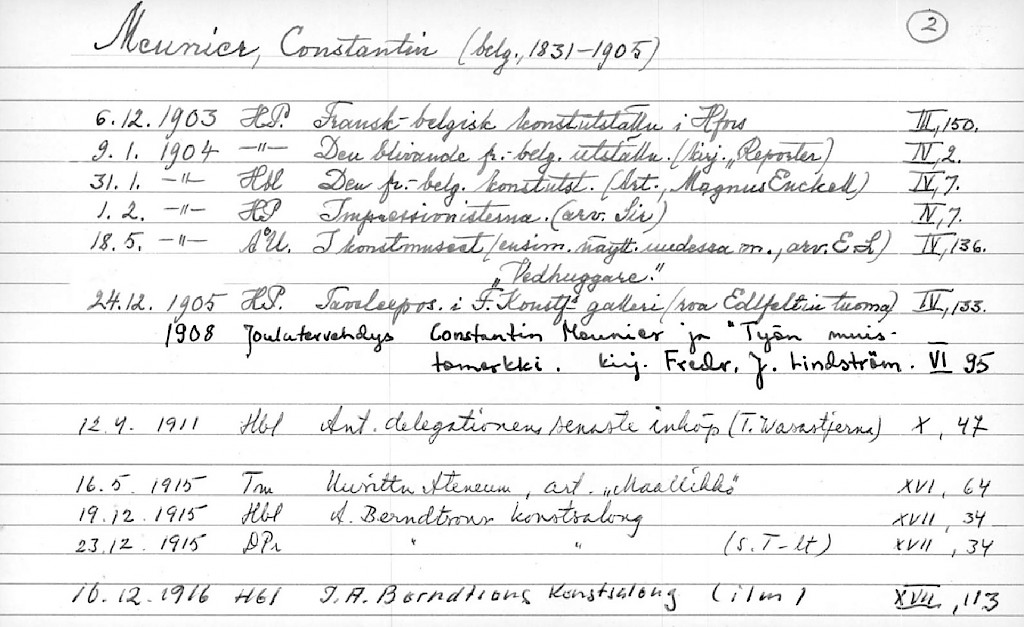 2
Meunier, Constantin (belg., 1831-1905)
6.12.1903 H.P. Fransk-belgisk konstutställn i Hfors III, 150.
9.1. 1904 -"- Den blivande fr.-belg. utställn. (kirj. „Reporter) IV, 2.
31.1. -"- Hbl Den fr.-belg. konstutst. (Art., Magnus Enckell) IV, 7.
1.2. -"- HP Impressionisterna. (arv. Sir) IV, 7.
18.5. -"- Å.U. I konstmuseet / ensim. näytt. uudessa m., arv. E. L) IV, 136.
„Vedhuggare."
24.12. 1905 H.P. Tavleepos. i F. Konstf:s galleri (rva Edlfeltin tuoma) IV, 133.
1908 Joulutervehdys Constantin Meunier ja "Työn muis-
tomerkki. kirj. Fredr. J. Lindström. VI 95
12.4. 1911 Hbl Ant. delegationens senaste inköp (T. Wasastjerna) X, 47
16.5. 1915 Tm Uusittu Ateneum, art. „Maallikko" XVI, 64
19.12.1915 Hbl A. Berndtsons konstsalong XVII, 34
23.12.1915 DPr " " (s. T-lt) XVII, 34
10.12.1916 Hbl J. A. Berndtsons Konstsalong (ilm) XVII, 113